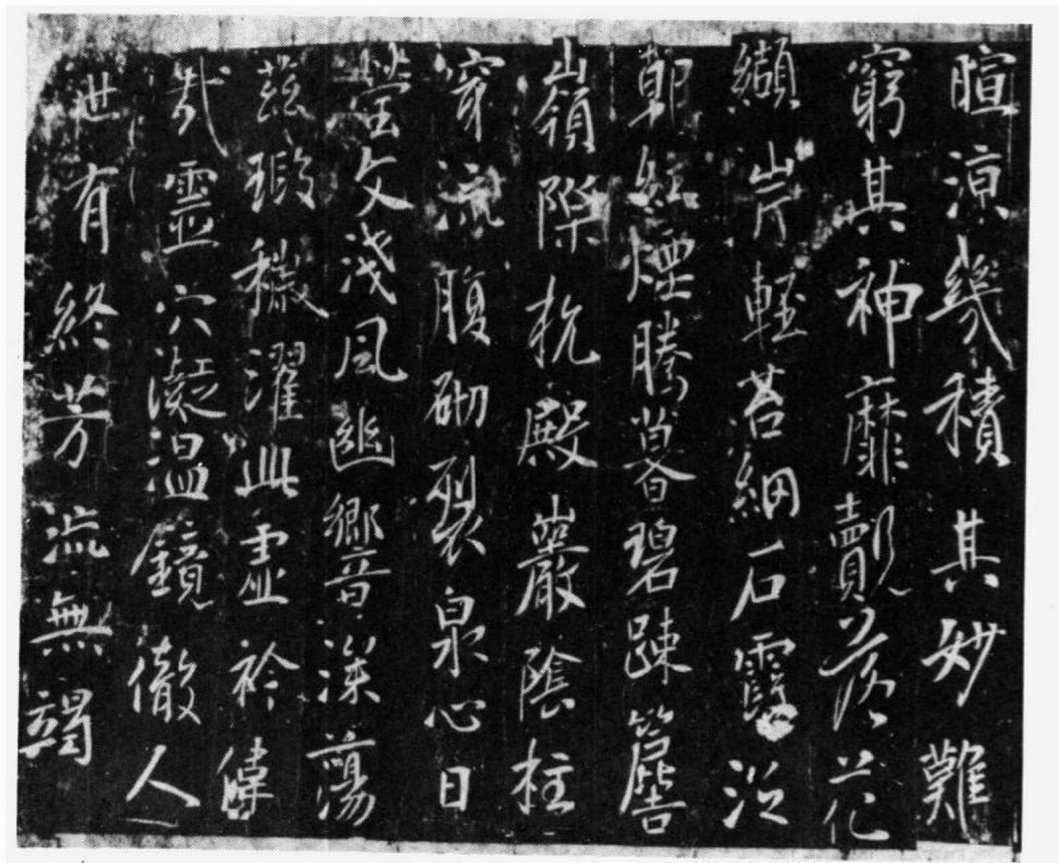 暄涼幾積其妙難
窮其神靡覿落花
纈岸輕苔網石霞泛
朝紅煙騰暮碧疎簷
嶺際抗殿巖陰柱
穿流腹砌裂泉心日
瑩文淺風幽響深蕩
茲瑕穢濯此虛衿偉
哉靈穴凝溫鏡徹人
世有終芳流無竭